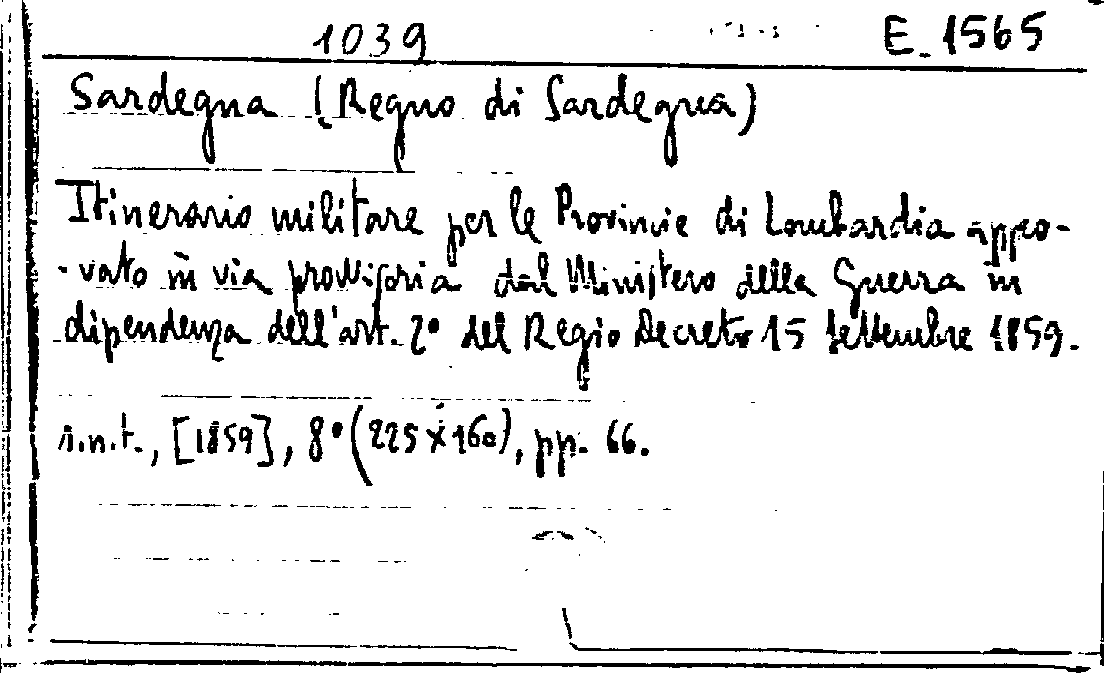 1039 E. 1565
Sardegna (Regno di Sardegna)
Itinerario militare per le Provincie di Lombardia appro-
-vato in via provvisoria dal Ministero della Guerra in
dipendenza dell'art. 2° del Regio Decreto 15 Settembre 1859.
s.n.t., [1859], 8° (225 x 160), pp. 66.